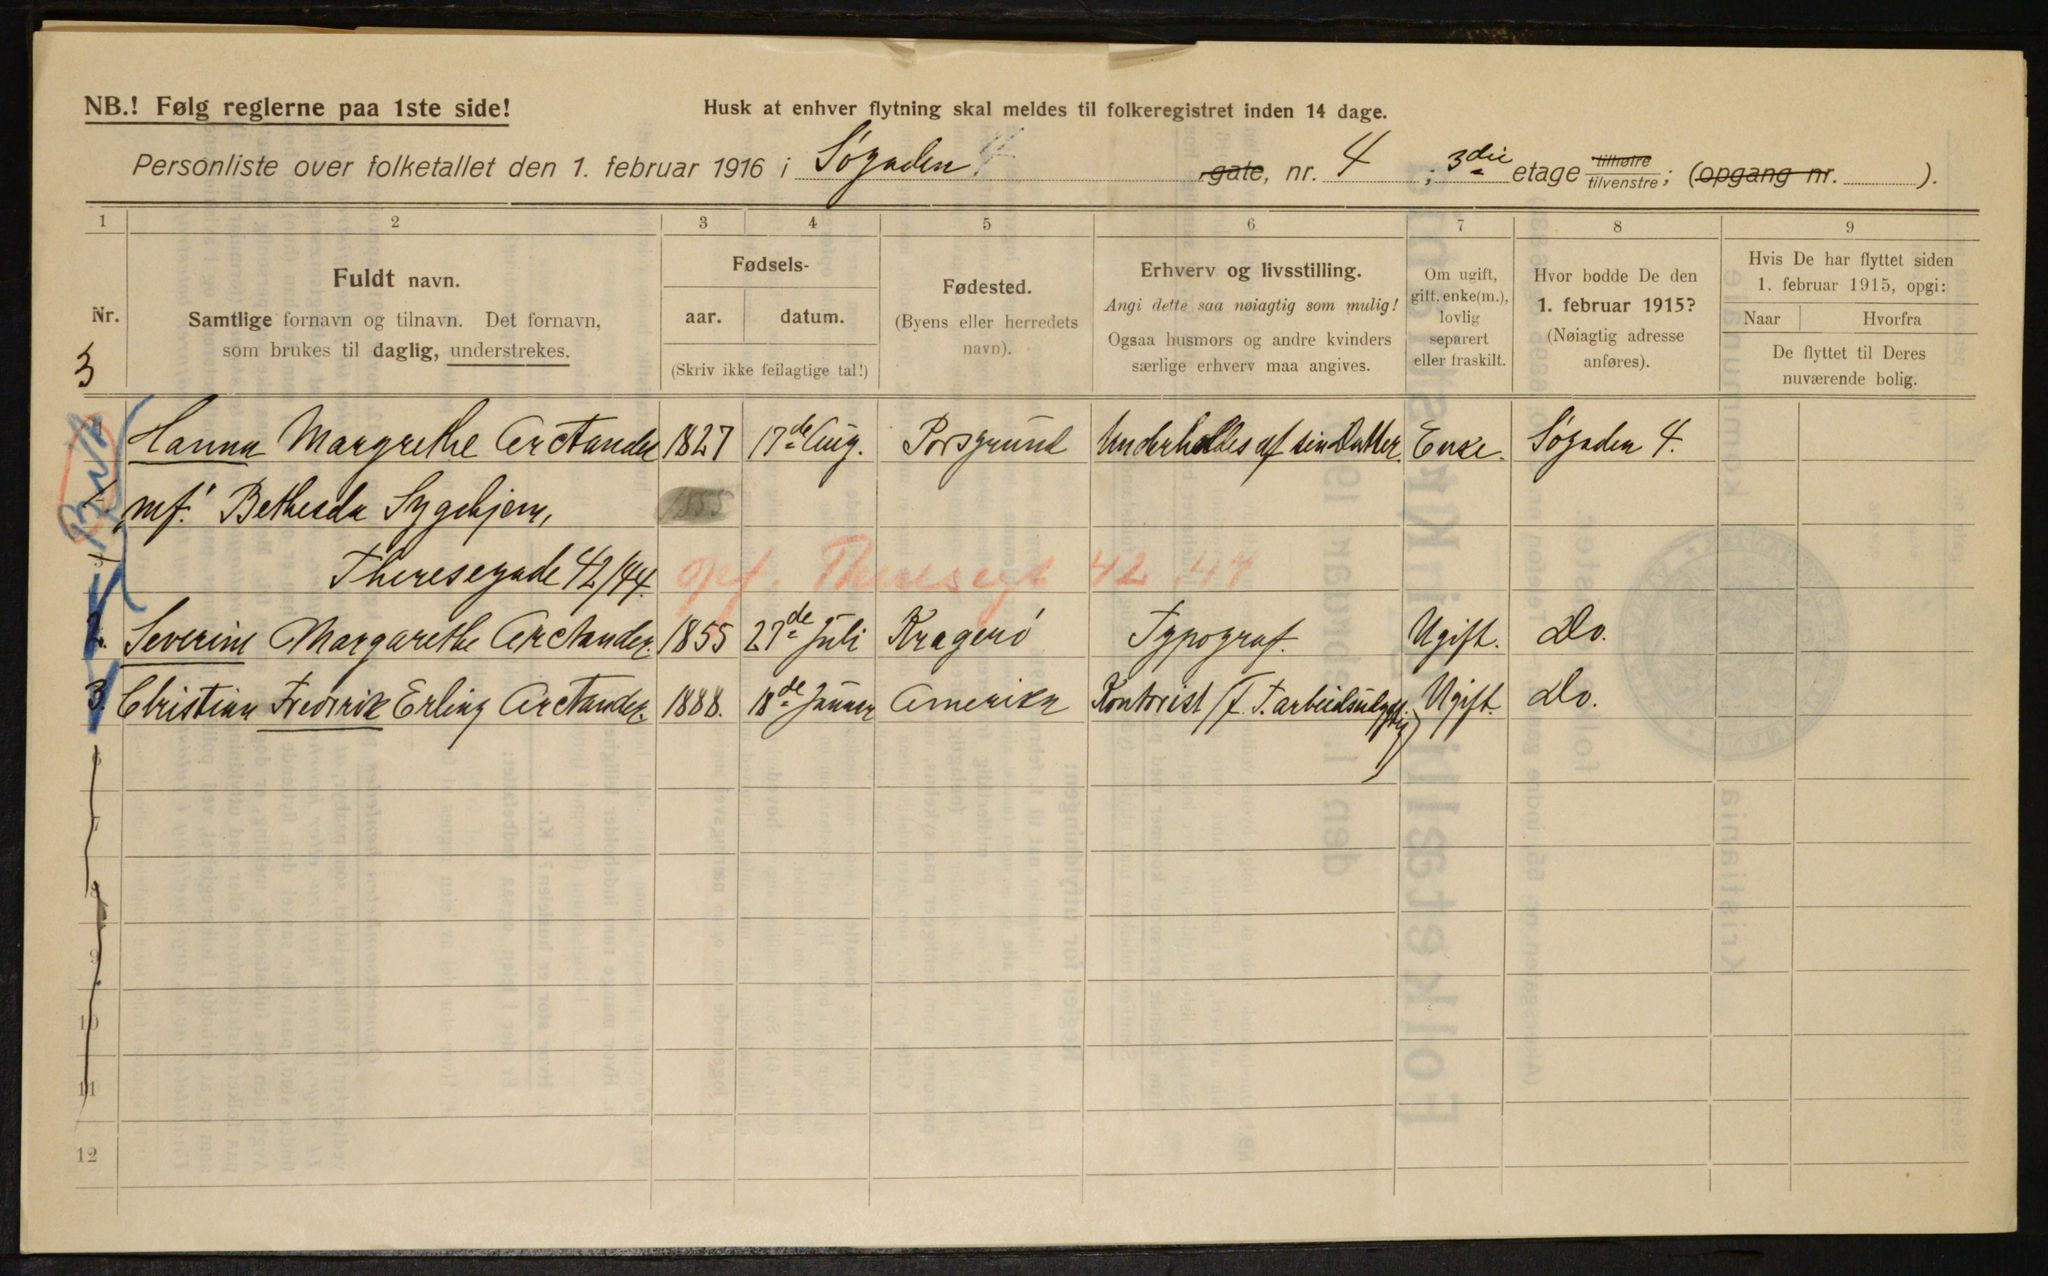 NB.! Følg reglerne paa 1ste side!
Husk at enhver flytning skal meldes til folkeregistret inden 14 dage.
Personliste over folketallet den 1. februar 1916 i Søgaden 4 gate, nr. 4 ; 3die etage tilhøire tilvenstre; (opgang nr. ).
1 2 3 4 5 6 7 8 9
Nr.
3
Fuldt navn.
Samtlige fornavn og tilnavn. Det fornavn,
som brukes til daglig, understrekes.
Fødsels-
aar. datum.
(Skriv ikke feilagtige tal!)
Fødested.
(Byens eller herredets
navn).
Erhverv og livsstilling.
Angi dette saa nøiagtig som mulig!
Ogsaa husmors og andre kvinders
særlige erhverv maa angives.
Om ugift,
gift, enke(m.),
lovlig
separert
eller fraskilt.
Hvor bodde De den
1. februar 1915?
(Nøiagtig adresse
anføres).
Hvis De har flyttet siden
1. februar 1915, opgi:
Naar Hvorfra
De flyttet til Deres
nuværende bolig.
Hanna Margrethe Arctander 1827 17de Aug. Porsgrund Underholdes af sin Datter. Enke. Søgaden 4.
mf. Bethesda Sygehjem, 1855
Theresegade 42/44. opf. Theresegt 42, 44
2. Severine Margarethe Arctander. 1855 27de Juli Kragerö Typograf. Ugift. Do.
3. Christian Fredrik Erling Arctander. 1888. 18de Januar Amerika Kontorist (f. T. arbeidsudygtig) Ugift. Do.
6
7
8
9
10
11
12